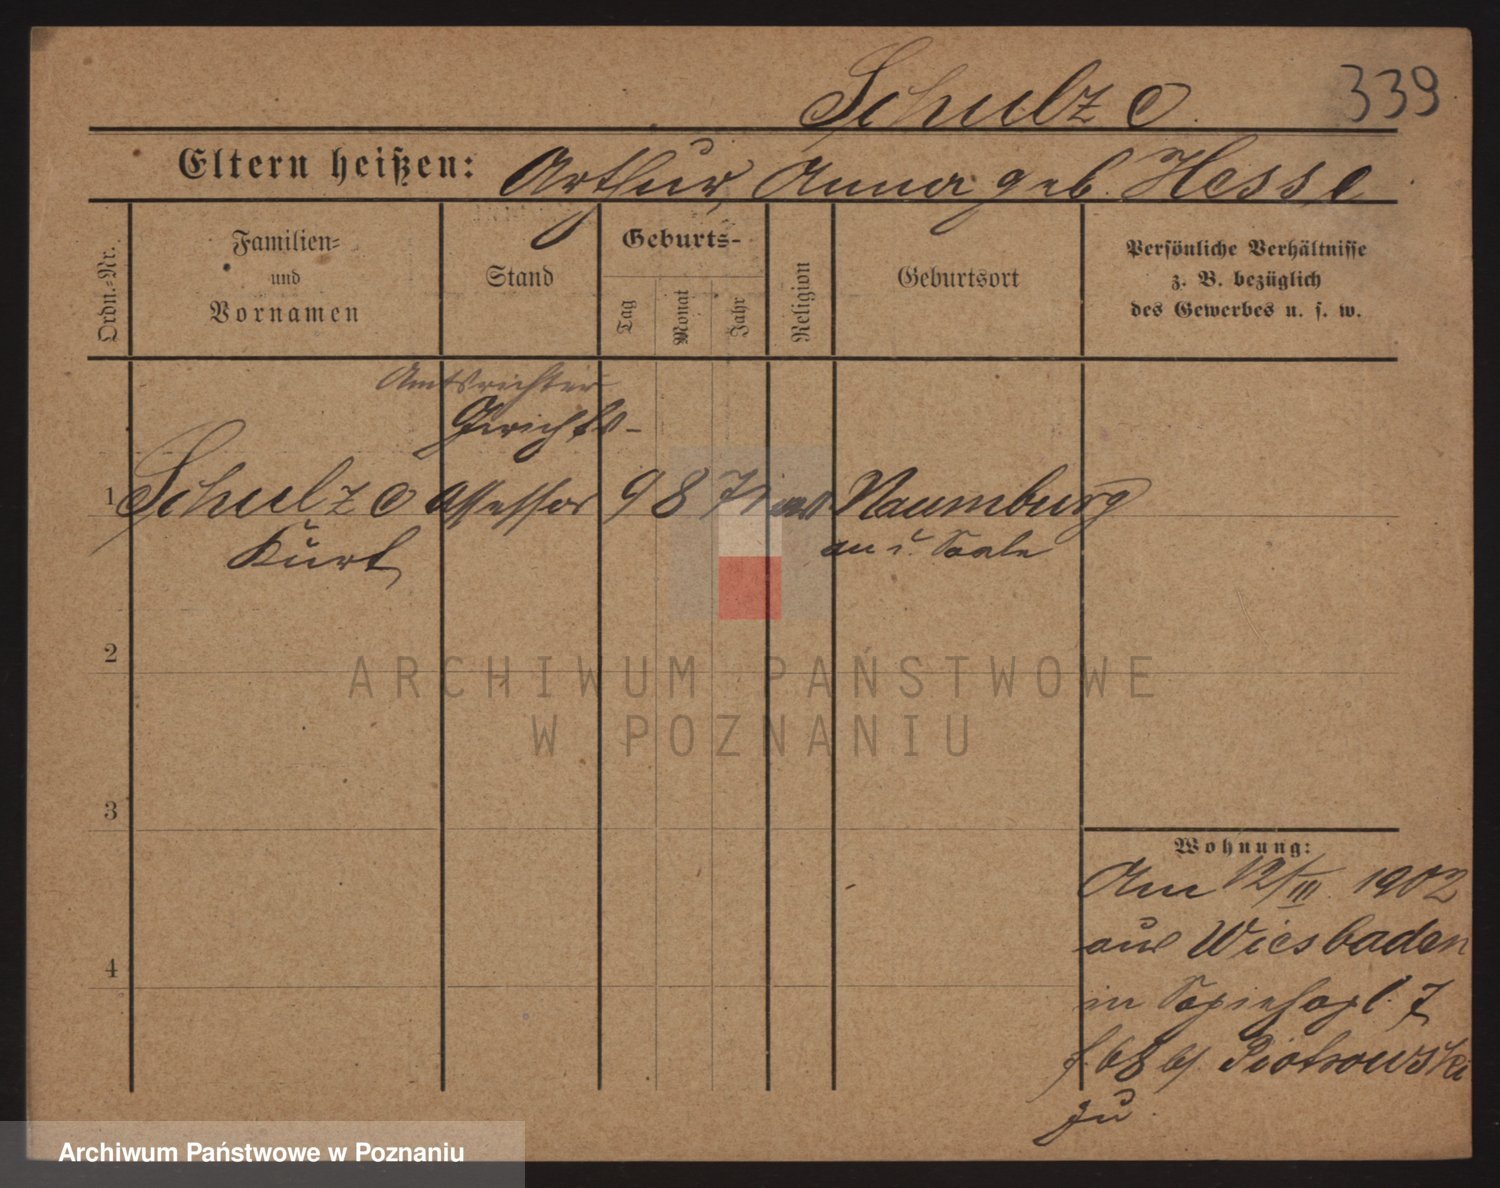 Schulze
339
Eltern heißen: Arthur, Anna geb. Hesse
Ordn.-Nr.
Familien-
und
Vornamen
Stand
Geburts-
Tag
Monat
Jahr
Religion
Geburtsort
Persönliche Verhältnisse
z. B. bezüglich
des Gewerbes u. s. w.
Amtsrichter
Gerichts-
1 Schulze assessor 9 8 71 Naumburg
Kurt
an d. Saale
2
ARCHIWUM PAŃSTWOWE
W POZNANIU
3
Wohnung:
Am 12/III. 1902
aus Wiesbaden
4
in Sapiehapl. 7
b/ Piotrowski
zu
Archiwum Państwowe w Poznaniu